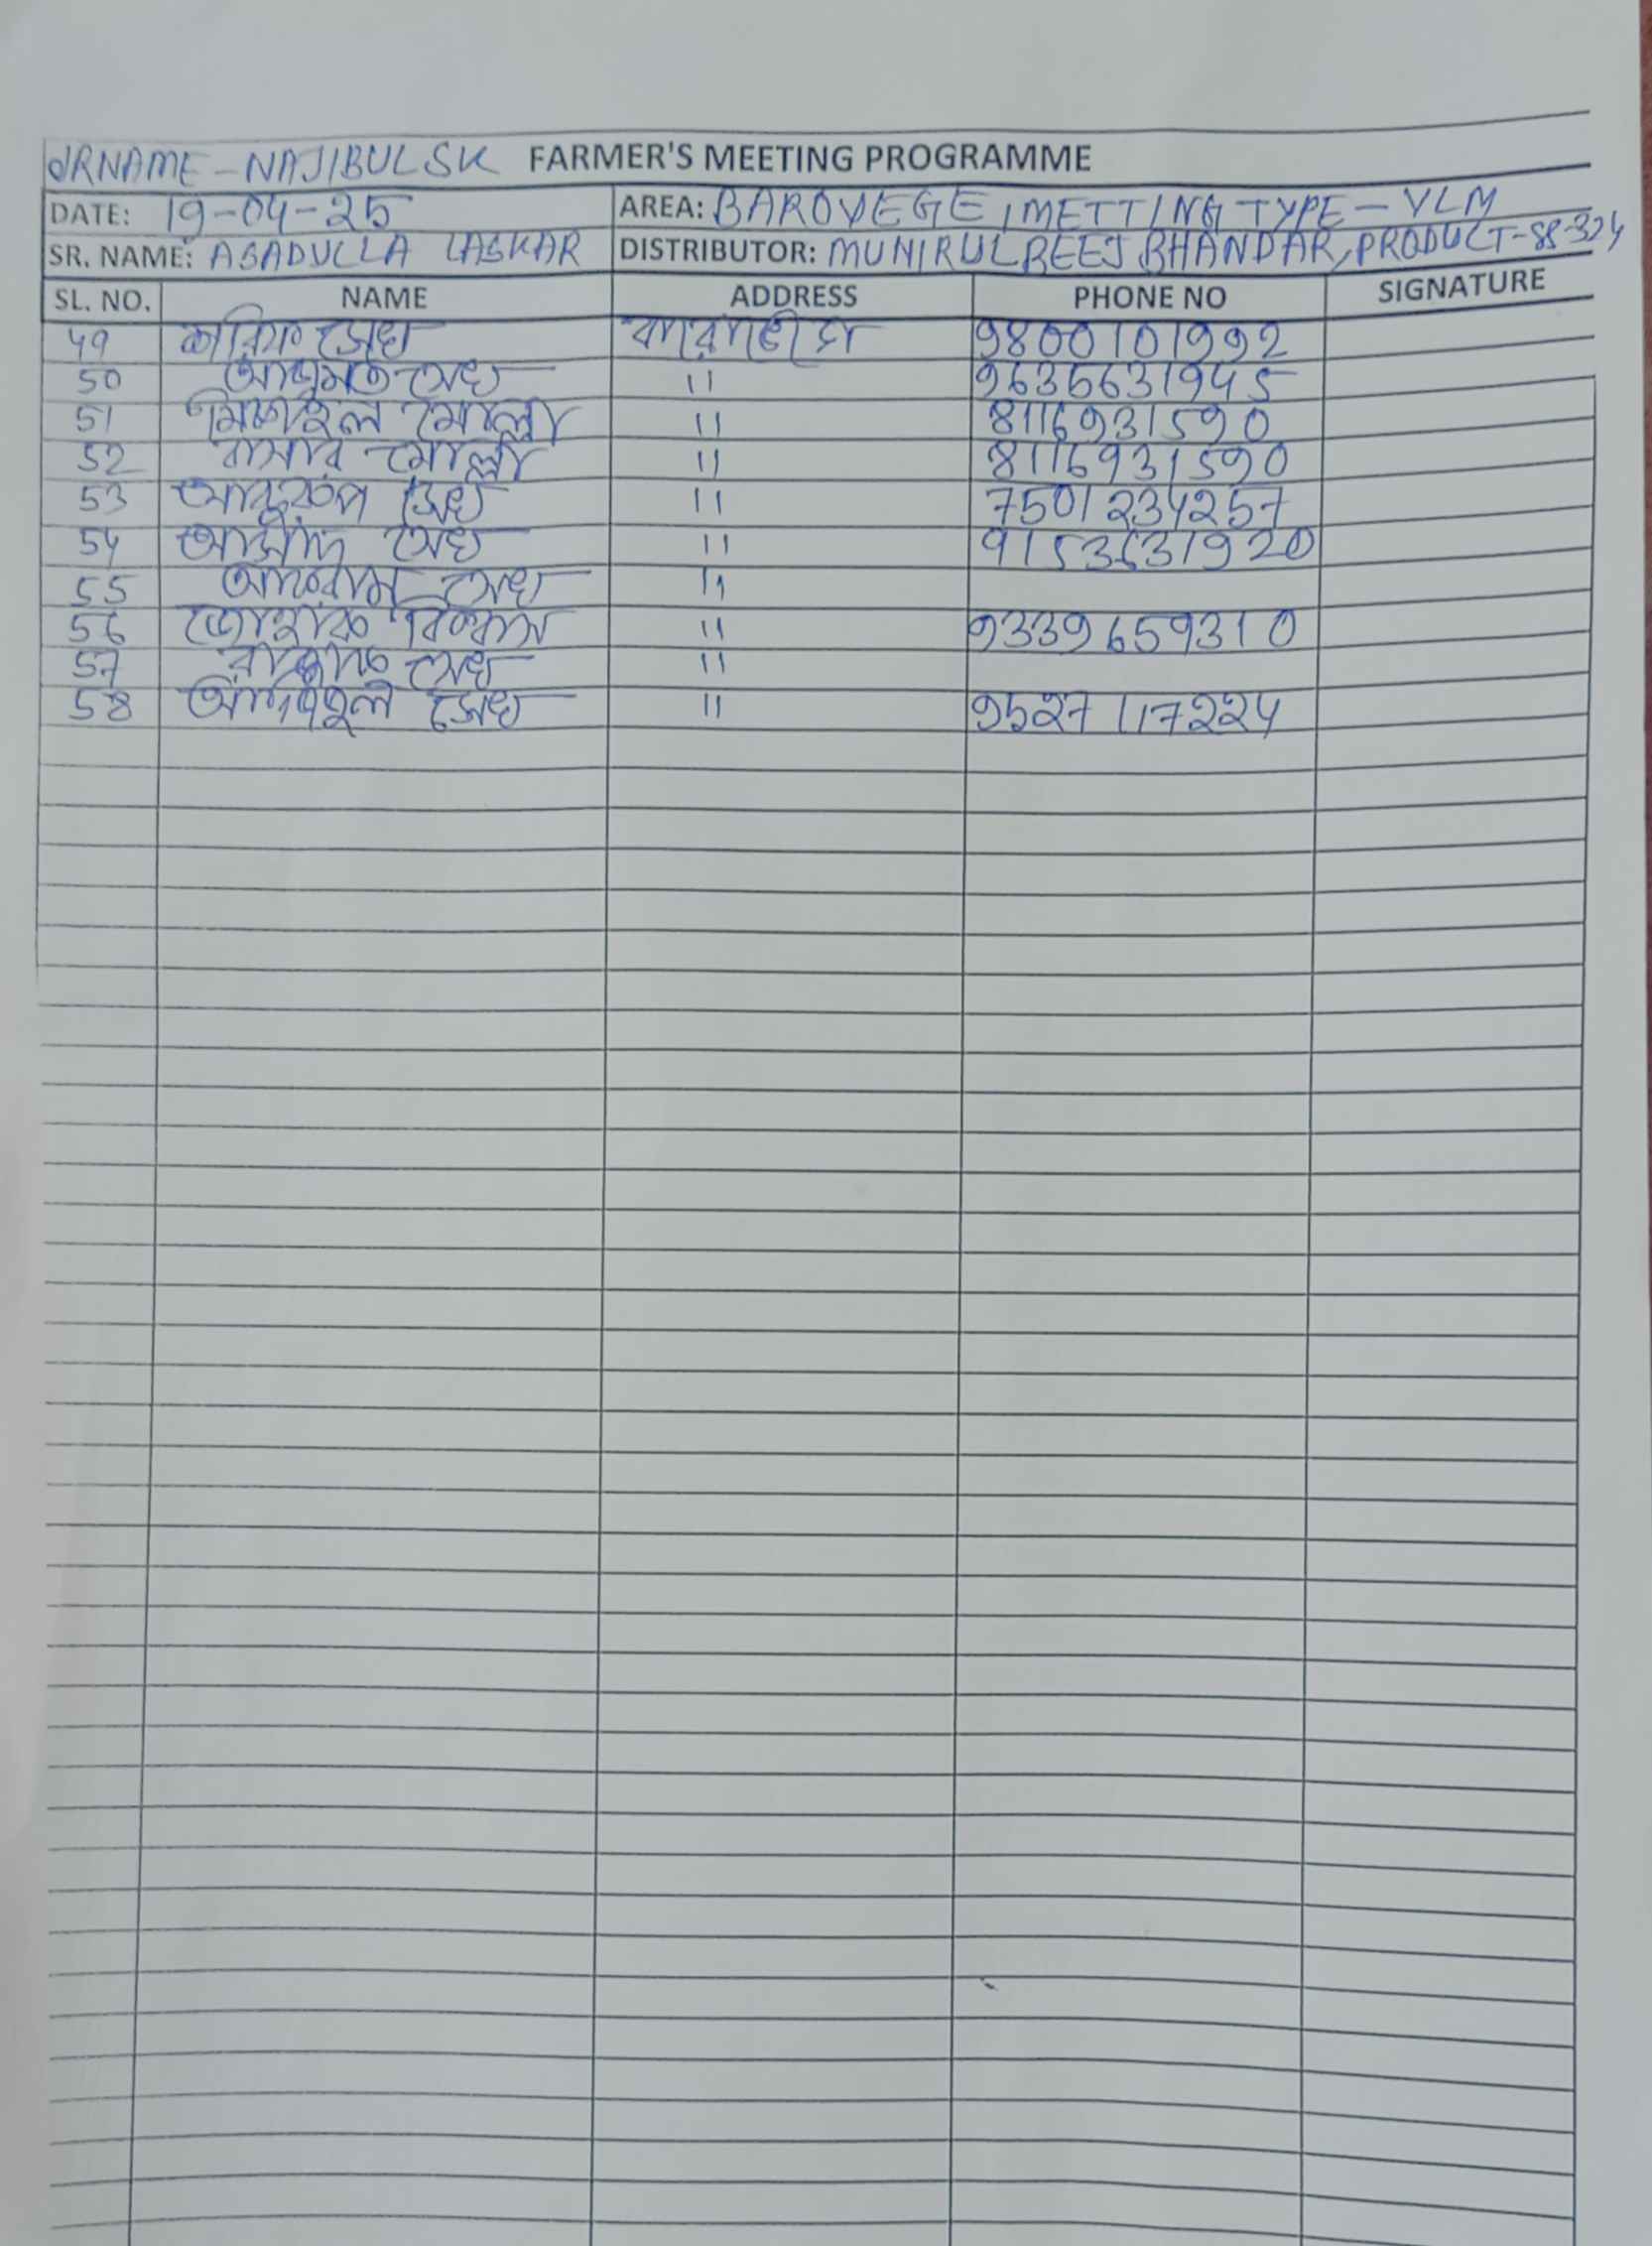 JRNAME - NAJIBUL SK FARMER'S MEETING PROGRAMME
DATE: 19-04-25 AREA: BAROVEGE, METTING TYPE - VLM
SR. NAME: ASADULLA LASKAR DISTRIBUTOR: MUNIRUL BEEJ BHANDAR, PRODUCT-SS-324
SL. NO. NAME ADDRESS PHONE NO SIGNATURE
49 সেখ 9800101992
50 সেখ " 9635631945
51 মোল্লা " 8116931590
52 বাসার মোল্লা " 8116931590
53 সেখ " 7501234257
54 সেখ " 9153631920
55 সেখ "
56 বিশ্বাস " 9339659310
57 সেখ "
58 সেখ " 9527117224